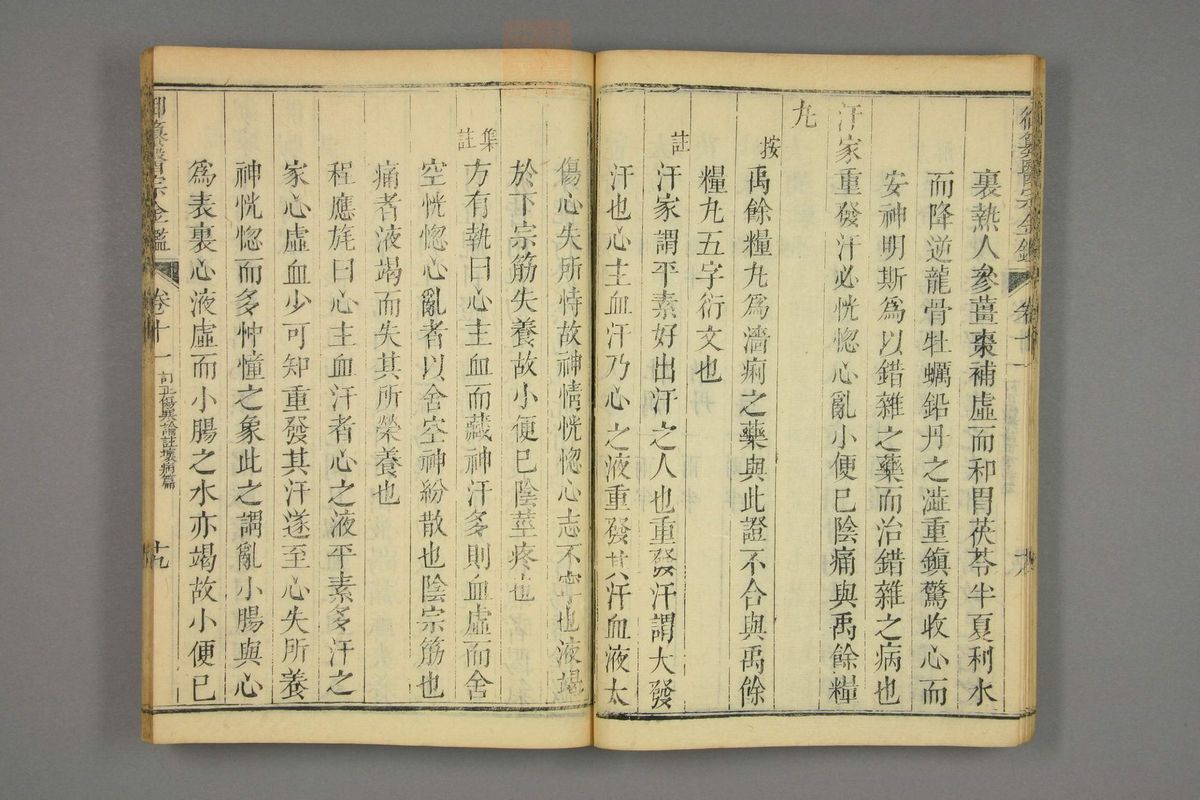 裏熱人參薑棗補虛而和胃茯苓半夏利水
而降逆龍骨牡蠣鉛丹之澁重鎮驚收心而
安神明斯爲以錯雜之藥而治錯雜之病也
汗家重發汗必恍惚心亂小便已陰痛與禹餘糧
九
按禹餘糧九爲濇痢之藥與此證不合與禹餘
糧九五字衍文也
註汗家謂平素好出汗之人也重發汗謂大發
汗也心主血汗乃心之液重發其汗血液太
傷心失所恃故神情恍惚心志不寧也液竭
於下宗筋失養故小便已陰莖疼也
集註方有執曰心主血而藏神汗多則血虛而舍
空恍惚心亂者以舍空神紛散也陰宗筋也
痛者液竭而失其所榮養也
程應旄曰心主血汗者心之液平素多汗之
家心虛血少可知重發其汗遂至心失所養
神恍惚而多忡憧之象此之謂亂小腸與心
爲表裏心液虛而小腸之水亦竭故小便已
御纂醫宗金鑑 卷十一 訂正傷寒論註壞病篇 十九